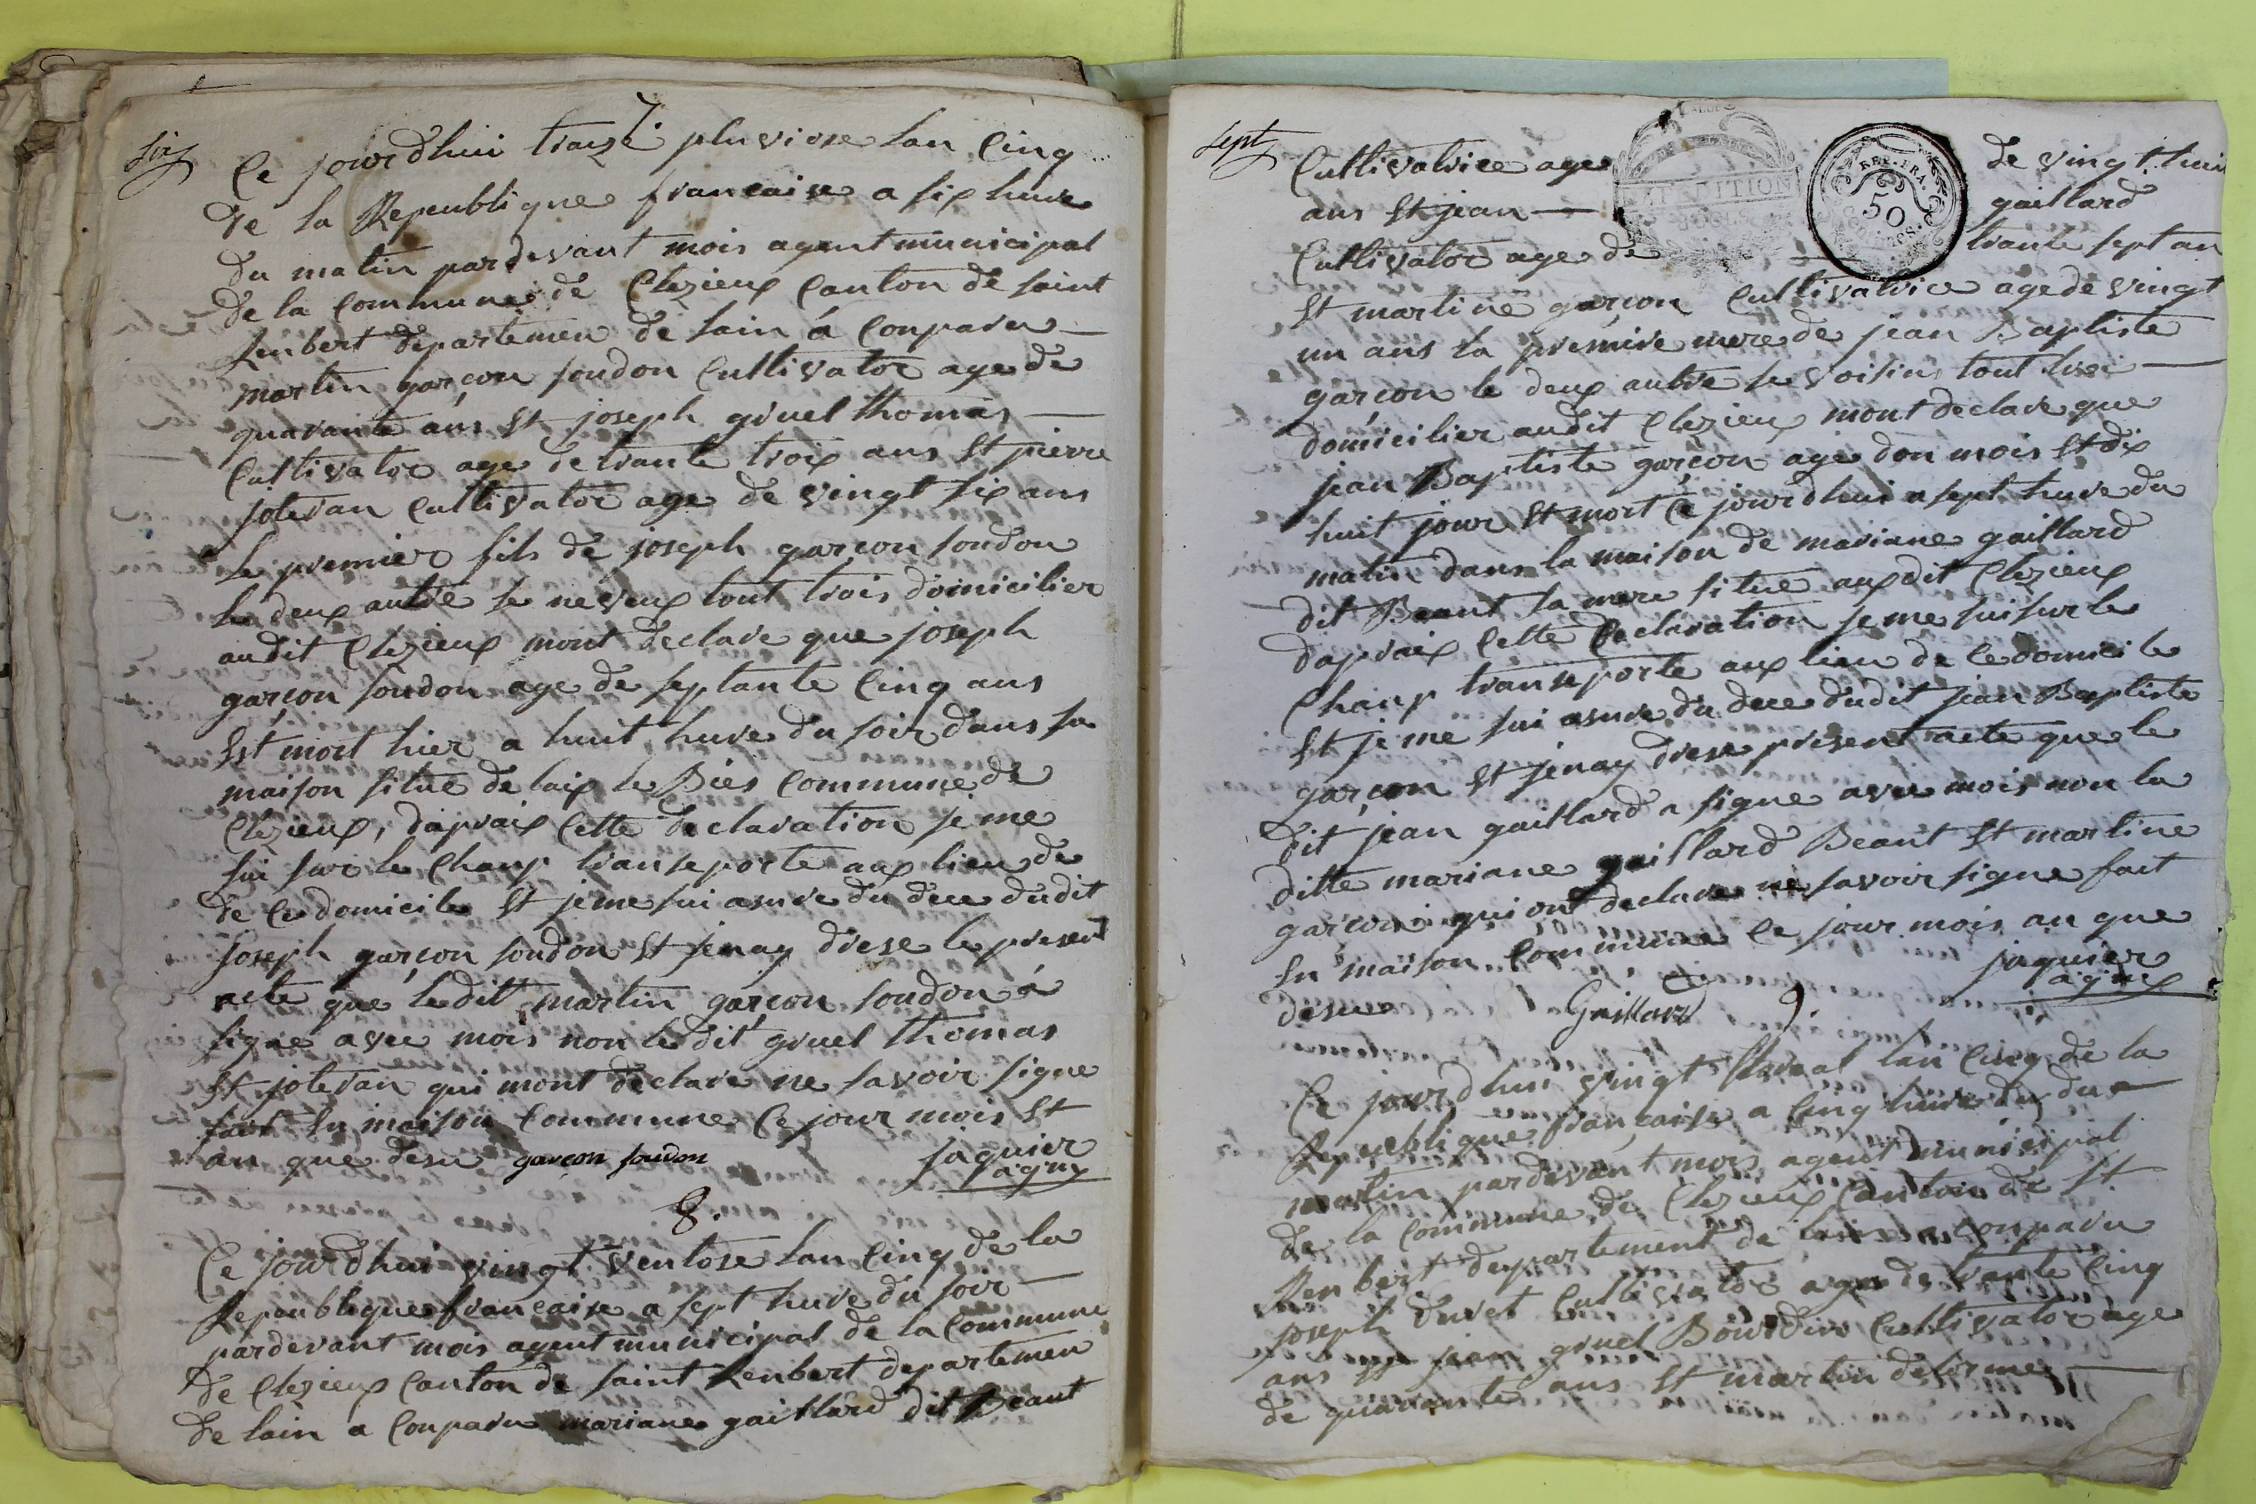 six
7.
Ce jourdhui traize pluviose lan Cinq
de la Republique francaise a six heure
du matin pardevant mois agent municipal
de la Commune de Clezieux Canton de saint
Renbert departemen de lain á Conparu
martin garcon soudon Cultivator age de
quarante ans Et joseph gruel thomas
Cultivator age de trante troix ans Et pierre
jolevan Cultivator age de vingt six ans
le premier fils de joseph garcon soudon
le deux autre se neveux tout trois domicilier
audit Clezieux mont declare que joseph
garcon soudon age de septante Cinq ans
Est mort hier a huit heure du soir dans sa
maison situe de laix le Bies Commune de
Clezieux, dapraix Cette declaration je me
sui sur le Chanp transeporte aux lieu de
de Ce domicile Et jeme sui asure du dece dudit
joseph garcon soudon Et jenay drese le present
acte que ledit martin garcon soudon á
signe avec mois non le dit gruel thomas
Et jolevan qui mont declare ne savoir signe
fait En maison Commune Ce jour mois Et
an que desu garcon soudon jaquier
agnx
8.
Ce jourdhui vingt ventose lan Cinq de la
Republique francaise a sept heure du soir
pardevant mois agent municipal de la Commune
de Clezieux Canton de saint Renbert departemen
de lain a Conparu mariane gaillard dit Béant
sept
Cultivatrice age de vingt huit
ans Et jean gaillard
Cultivator age de trante sept an
Et martine garcon Cultivatrice age de vingt
un ans la premire mere de jean Baptiste
garcon le deux autre se voisins tout troi
domicilier audit Clezieux mont declare que
jean Baptiste garcon age don mois Et dix
huit jour Et mort Ce jourdhui a sept heure du
matin dans la maison de mariane gaillard
dit Beant sa mere situe aux dit Clezieux
dapraix Cette declaration je me sui sur le
Chanp transeporte aux lieu de Ce domicile
Et je me sui asure du dece dudit jean Baptiste
garcon Et jenay drese present acte que le
dit jean gaillard a signe avec mois non la
ditte mariane gaillard Beant Et martine
garcon qui ont declare ne savoir signe fait
En maison Commune Ce jour mois an que
desue Gaillard jaquier
agnx
9.
Ce jourdhui vingt floreal lan Cinq de la
Republique francaise a Cinq heure du du
martin pardevant mois agent municipal
de la Commune de Clezieux Canton de St
Renbert departement de lain a Conparu
joseph duret Cultivator age de trante Cinq
ans Et jean gruel Bourdin Cultivator age
de quarante ans Et martin delorme
REP. FRA.
50
Centimes